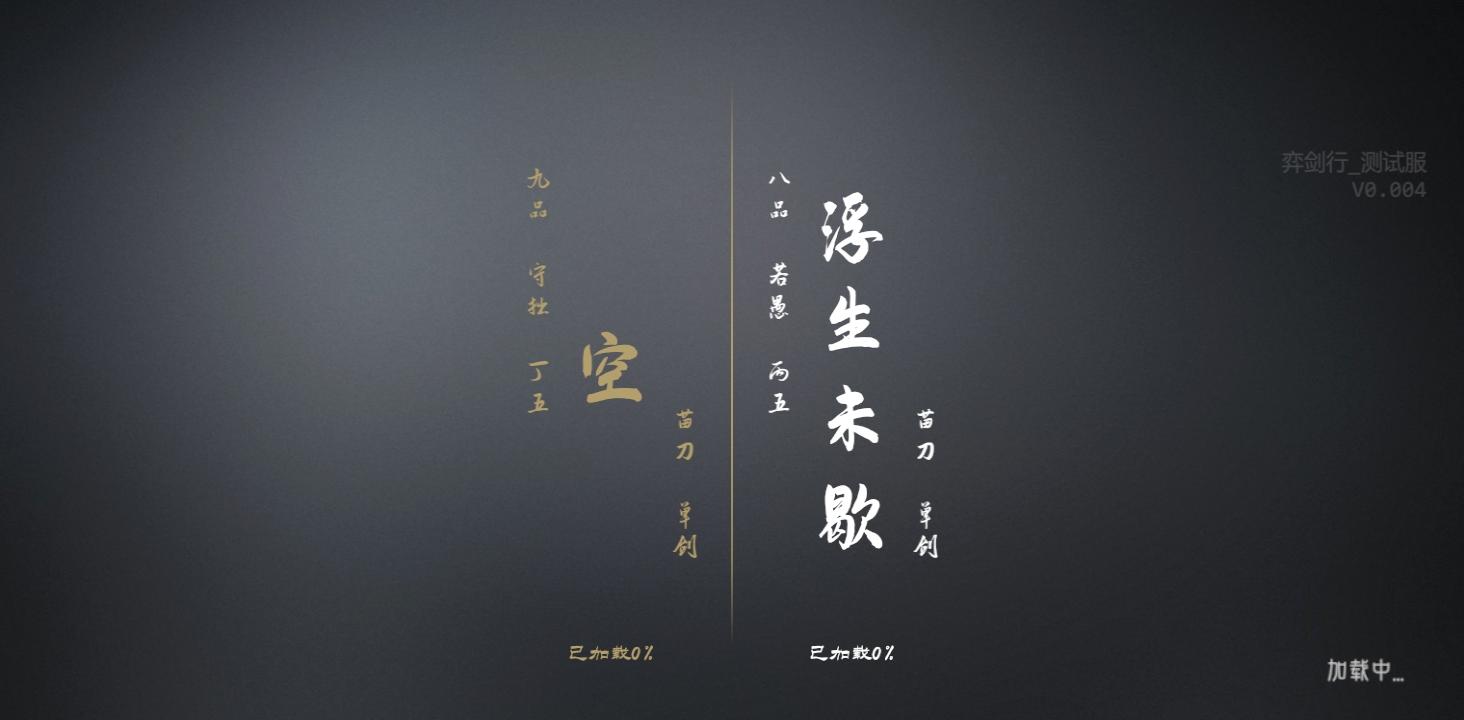 九品 守拙 丁五
空
苗刀 单剑
已加载0%
八品 若愚 丙五
浮生未歇
苗刀 单剑
已加载0%
弈剑行_测试服
V0.004
加载中...